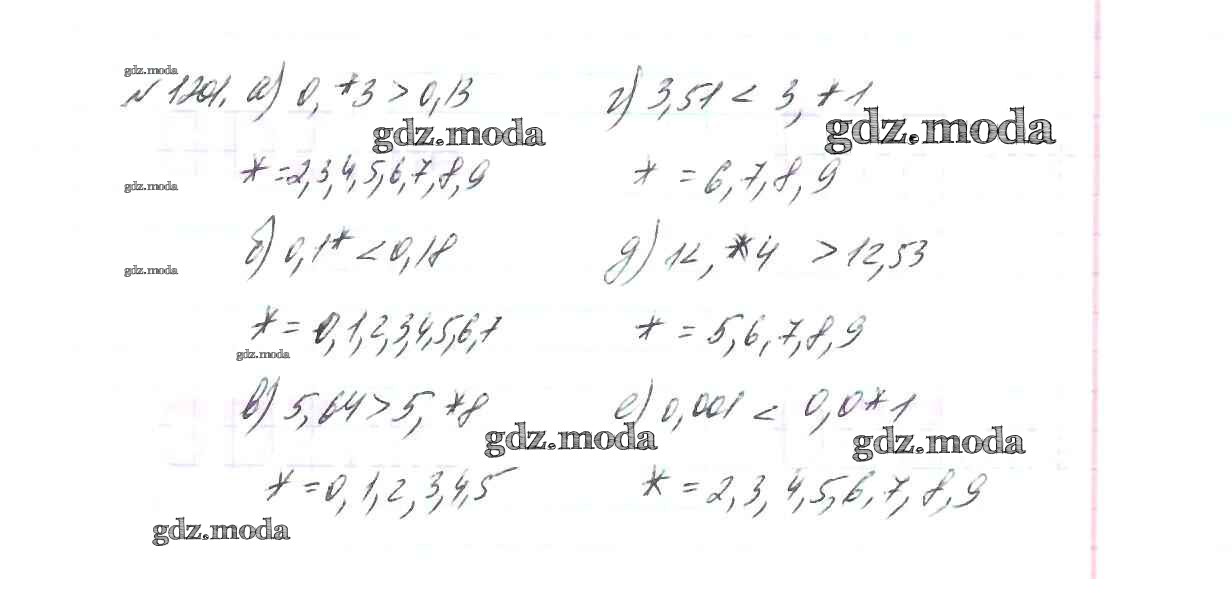 gdz.moda
№ 1201. а) 0,*3 > 0,13
gdz.moda
* = 2,3,4,5,6,7,8,9
gdz.moda
б) 0,1* < 0,18
gdz.moda
* = 0,1,2,3,4,5,6,7
gdz.moda
в) 5,64 > 5,*8
gdz.moda
* = 0,1,2,3,4,5
gdz.moda
г) 3,51 < 3,*1
gdz.moda
* = 6,7,8,9
д) 12,*4 > 12,53
* = 5,6,7,8,9
е) 0,001 < 0,0*1
gdz.moda
* = 2,3,4,5,6,7,8,9